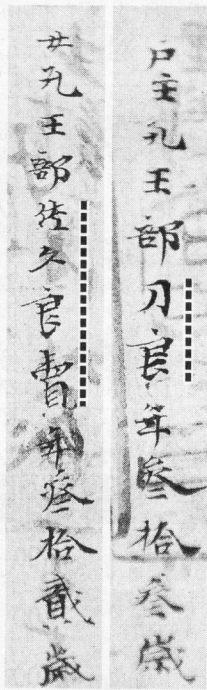 戸主孔王部刀良年參拾參歳
孔王部佐久良賣年參拾貳歳